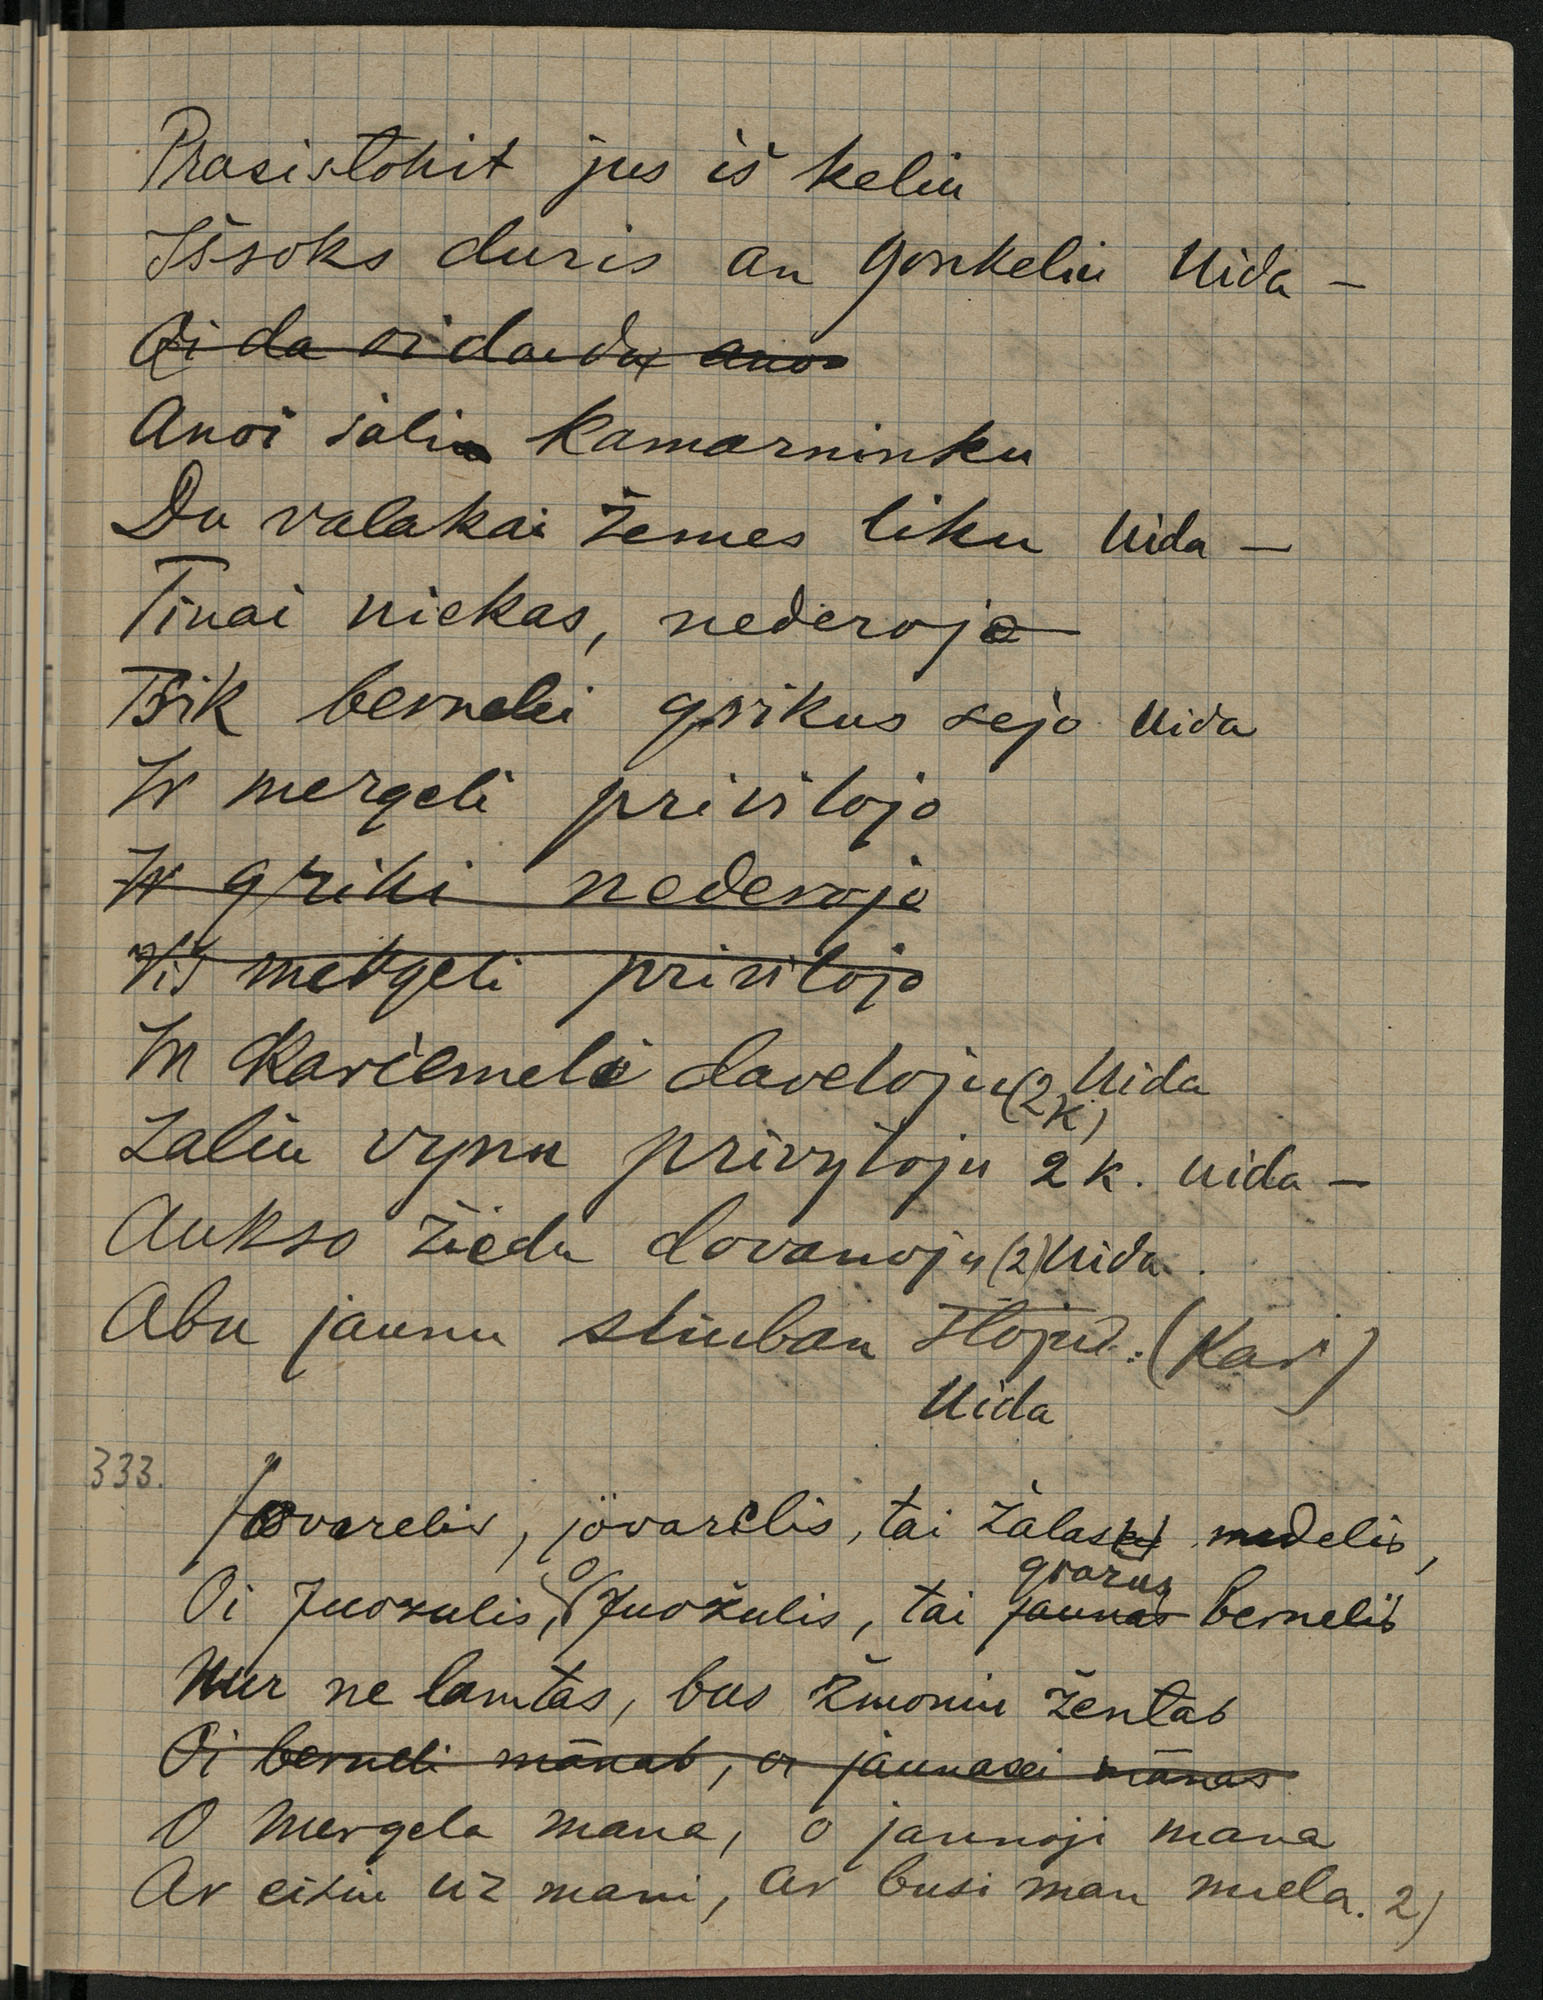 Prasistokit jus iš keliu
Iššoks duris an gonkeliu Uida –
Oi da oi da uda anoi
Anoi šali kamarninku
Du valakai žemes liku Uida –
Tinai niekas, nederoja
Tik bernelei grikus sejo Uida
Ir mergeli privilojo
Ir griki nederojo
Vis mergeli privilojo
In karčemeli daveloju (2 k) Uida
Zaliu vynu privyloju 2 k. Uida –
Aukso žiedu dovanoju (2) Uida.
Abu jaunu sliuban stoju. (Kar)
Uida
333.
Jovarelis, jovarelis, tai žalas medelis,
gražus
Oi Juozulis, o Juozulis, tai jaunas bernelis
Kur ne lamtas, bus žmoniu žentas
Oi berneli mānas, oi jaunasei mānas
O mergela mana, o jaunoji mana
Ar eisiu už mani, ar busi man miela. 2)